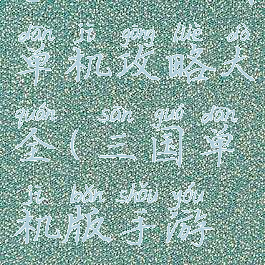 dān jī gōng lüè dà
单机攻略大
quán sān guó dān
全(三国单
jī bǎn shǒu yóu
机版手游